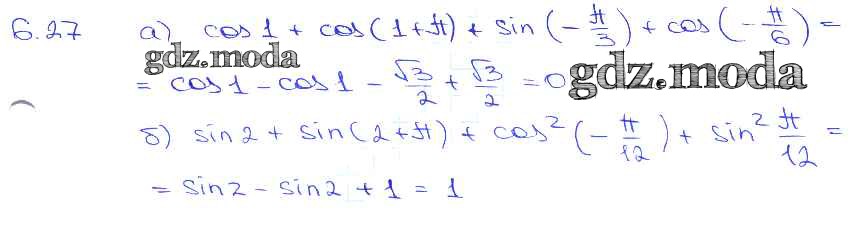 6.27 а) cos 1 + cos(1+π) + sin(-π/3) + cos(-π/6) =
gdz.moda
= cos 1 - cos 1 - √3/2 + √3/2 = 0 gdz.moda
б) sin 2 + sin(2+π) + cos²(-π/12) + sin² π/12 =
= sin 2 - sin 2 + 1 = 1